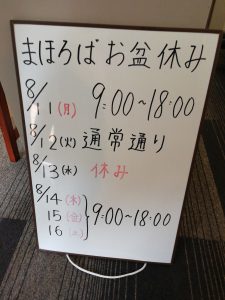 まほろばお盆休み
8/11(月) 9:00~18:00
8/12(火) 通常通り
8/13(水) 休み
8/14(木)
15(金) 9:00~18:00
16(土)